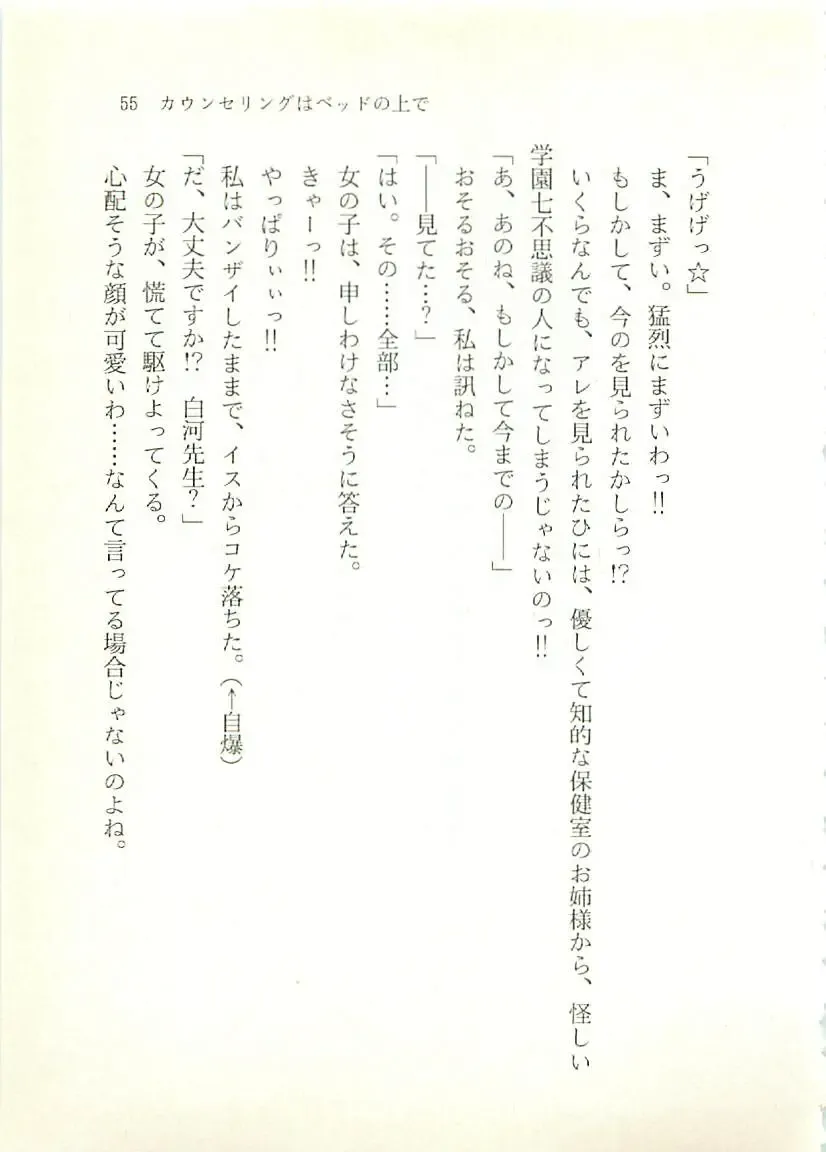 55　カウンセリングはベッドの上で
「うげげっ☆」
　ま、まずい。猛烈にまずいわっ!!
　もしかして、今のを見られたかしらっ!?
　いくらなんでも、アレを見られたひには、優しくて知的な保健室のお姉様から、怪しい
学園七不思議の人になってしまうじゃないのっ!!
「あ、あのね、もしかして今までの――」
　おそるおそる、私は訊ねた。
「――見てた…？」
「はい。その……全部…」
　女の子は、申しわけなさそうに答えた。
　きゃーっ!!
　やっぱりぃぃっ!!
　私はバンザイしたままで、イスからコケ落ちた。（←自爆）
「だ、大丈夫ですか!?　白河先生？」
　女の子が、慌てて駆けよってくる。
　心配そうな顔が可愛いわ……なんて言ってる場合じゃないのよね。